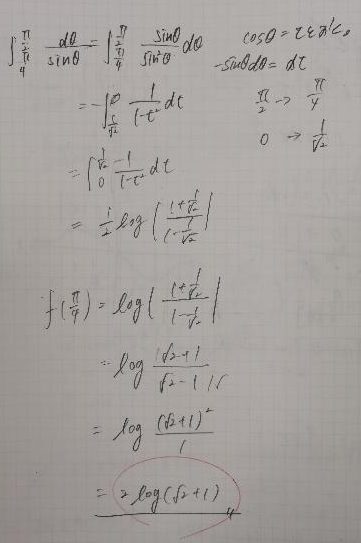 ∫_{π/4}^{π/2} dθ/sinθ = ∫_{π/4}^{π/2} sinθ/sin²θ dθ
cosθ = tとおく。
-sinθdθ = dt
π/2 → π/4
0 → 1/√2
= -∫_{1/√2}^{0} 1/(1-t²) dt
= ∫_{0}^{1/√2} -1/(1-t²) dt
= 1/2 log | (1+1/√2)/(1-1/√2) |
f(π/4) = log | (1+1/√2)/(1-1/√2) |
= log (√2+1)/(√2-1)
= log (√2+1)²/1
= 2 log(√2+1)